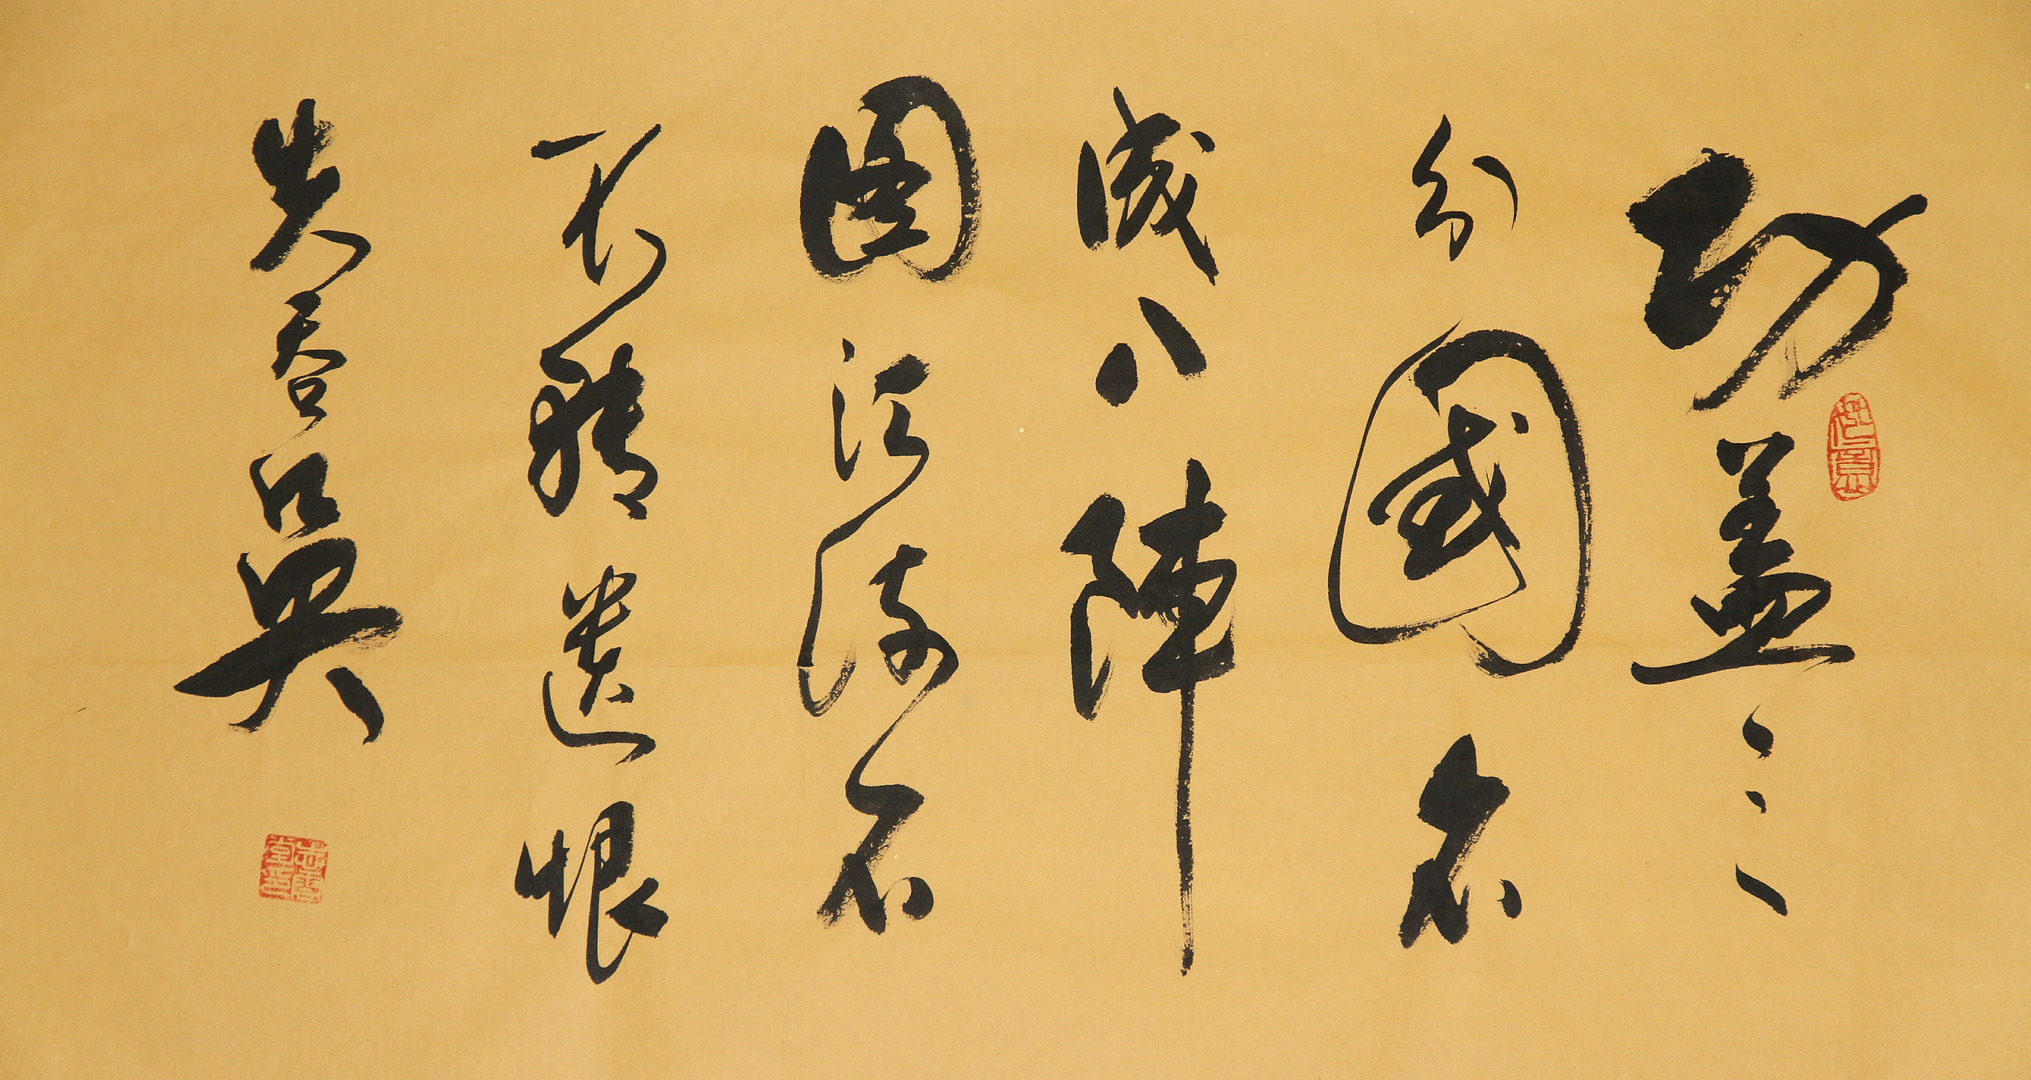 功盖三
分國名
成八陣
图江流石
不轉遺恨
失吞吳